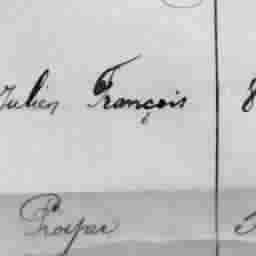 Julien François 8
Prosper